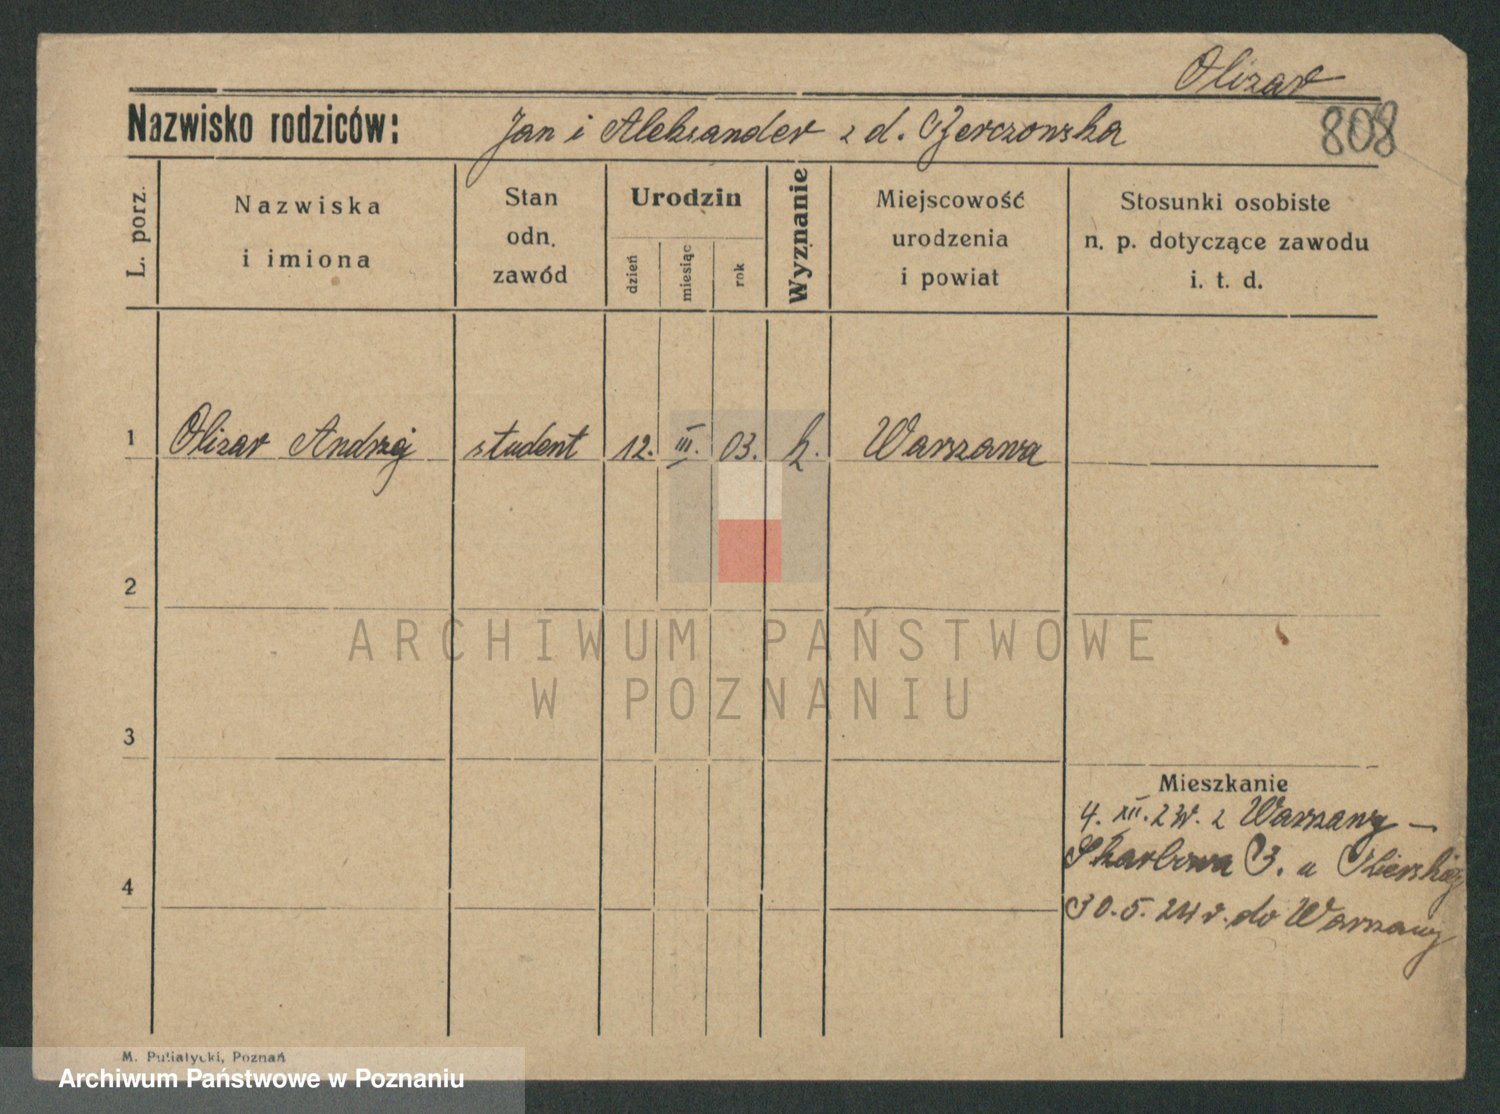 Olizar
Nazwisko rodziców: Jan i Aleksander z d.
808
L. porz.
Nazwiska
i imiona
Stan
odn.
zawód
Urodzin
dzień
miesiąc
rok
Wyznanie
Miejscowość
urodzenia
i powiat
Stosunki osobiste
n. p. dotyczące zawodu
i. t. d.
1 Olizar Andrzej student 12. III. 03. k. Warszawa
2
ARCHIWUM PAŃSTWOWE
W POZNANIU
3
Mieszkanie
4. XII. 23r. z Warszawy —
Skarbowa 3. u
4
30.5.24 r. do Warszawy
M. Putiatycki, Poznań
Archiwum Państwowe w Poznaniu